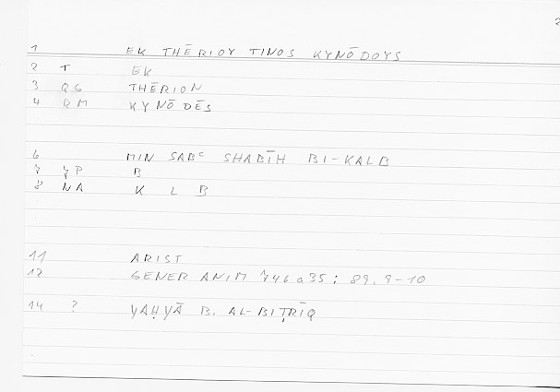 2
1 EK THĒRIOY TINOS KYNŌDOYS
2 T EK
3 QG THĒRION
4 QM KYNŌDĒS
6 MIN SABᶜ SHABĪH BI-KALB
7 7P B
8 NA K L B
11 ARIST
12 GENER ANIM 746a35; 89.9-10
14 ? YAḤYĀ B. AL-BIṬRĪQ